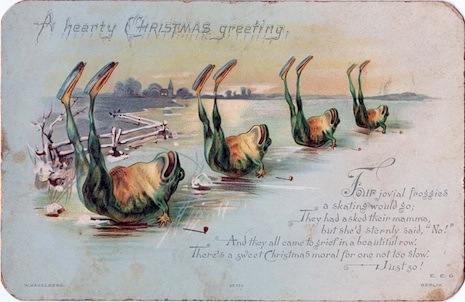 A hearty CHRISTMAS greeting.
Four jovial froggies
a skating would go;
They had asked their mamma,
but she'd sternly said, "No!"
And they all came to grief in a beautiful row.
There's a sweet Christmas moral for one not too slow.
Just so!
E. E. G
W. HAGELBERG.
BERLIN.